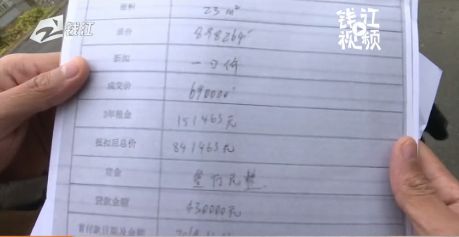 钱江
钱江视频
面积 23 m²
总价 898264
折扣 一口价
成交价 690000
3年租金 151463元
抵扣后总价 841463元
定金
贷款金额 430000元
首付款日期及金额